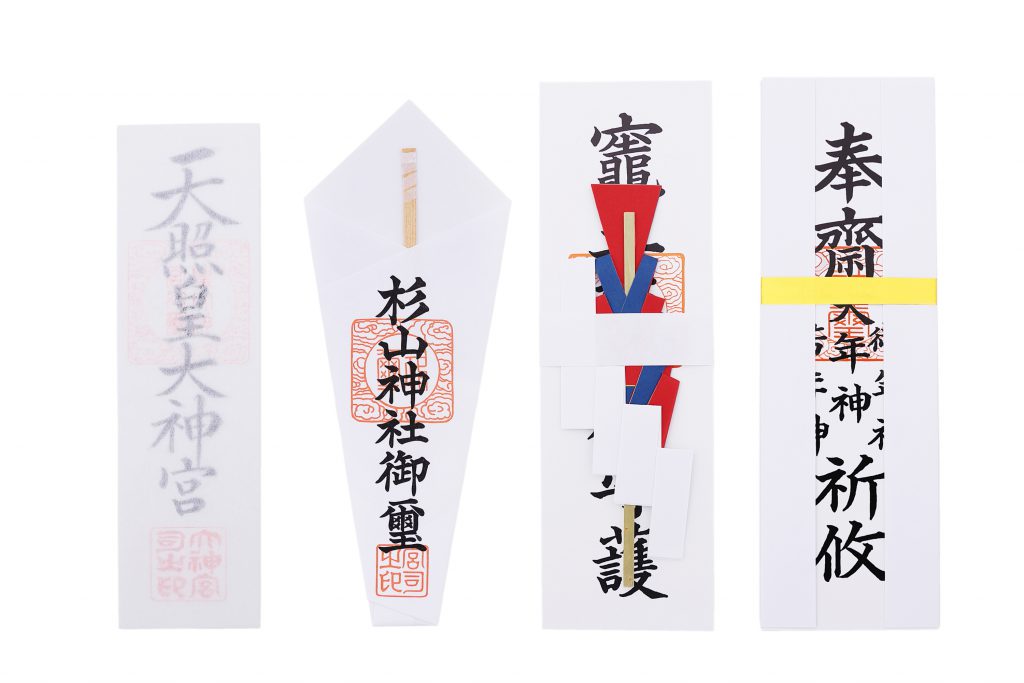 天照皇大神宮
大神宮
司之印
杉山神社御璽
宮司
之印
竈
護
奉齋大年神祈攸